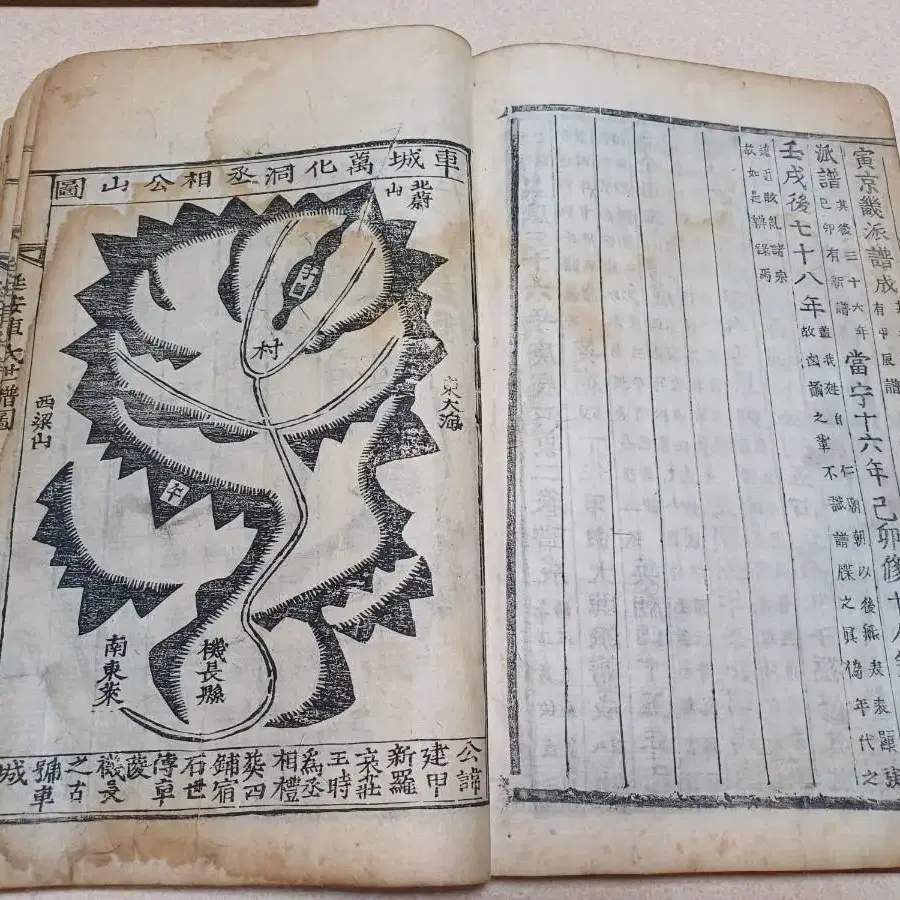 寅京畿派譜成
有甲辰譜
派譜
其後三十六年
己卯有新譜
當宁十六年己卯修
壬戌後七十八年
蓋我姓自仁朝朝以後無表表顯達
故凶譎之輩不識譜牒之眞僞年代之
遠近敢乱諸宗
故如是辨錄焉
車城萬化洞丞相公山圖
北蔚山
村
東大海
西梁山
午
機長縣
南東萊
公諱
建甲
新羅
哀莊
王時
爲丞
相禮
葬四
鋪宿
石世
傳車
陵
機長
之古
號車
城